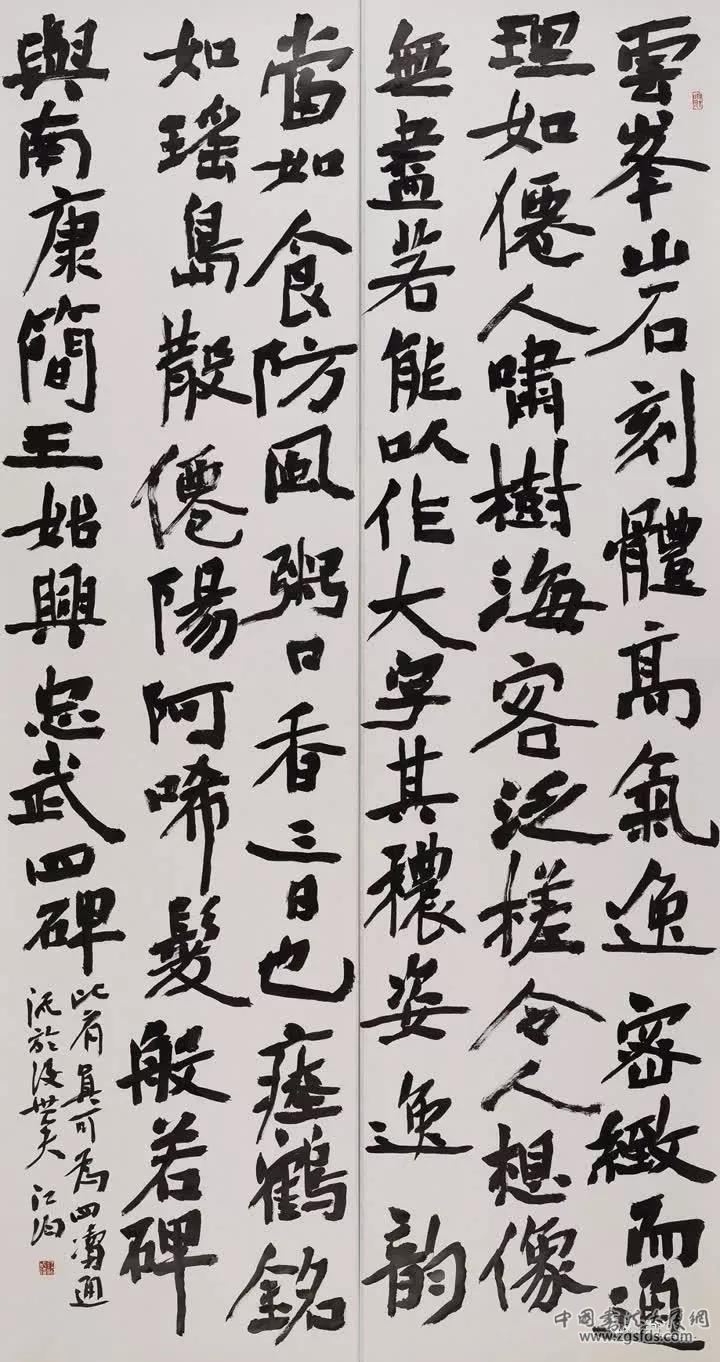 雲峯山石刻體高氣逸密緻而通
理如僊人嘯樹海客泛槎令人想像
無盡若能以作大字其穠姿逸韵
當如食防風粥口香三日也瘞鶴銘
如瑤島散僊陽阿晞髮般若碑
與南康簡王始興忠武四碑
此眞可為四瀆通
流於後世矣
中国书法大展網
www.zgsfds.com